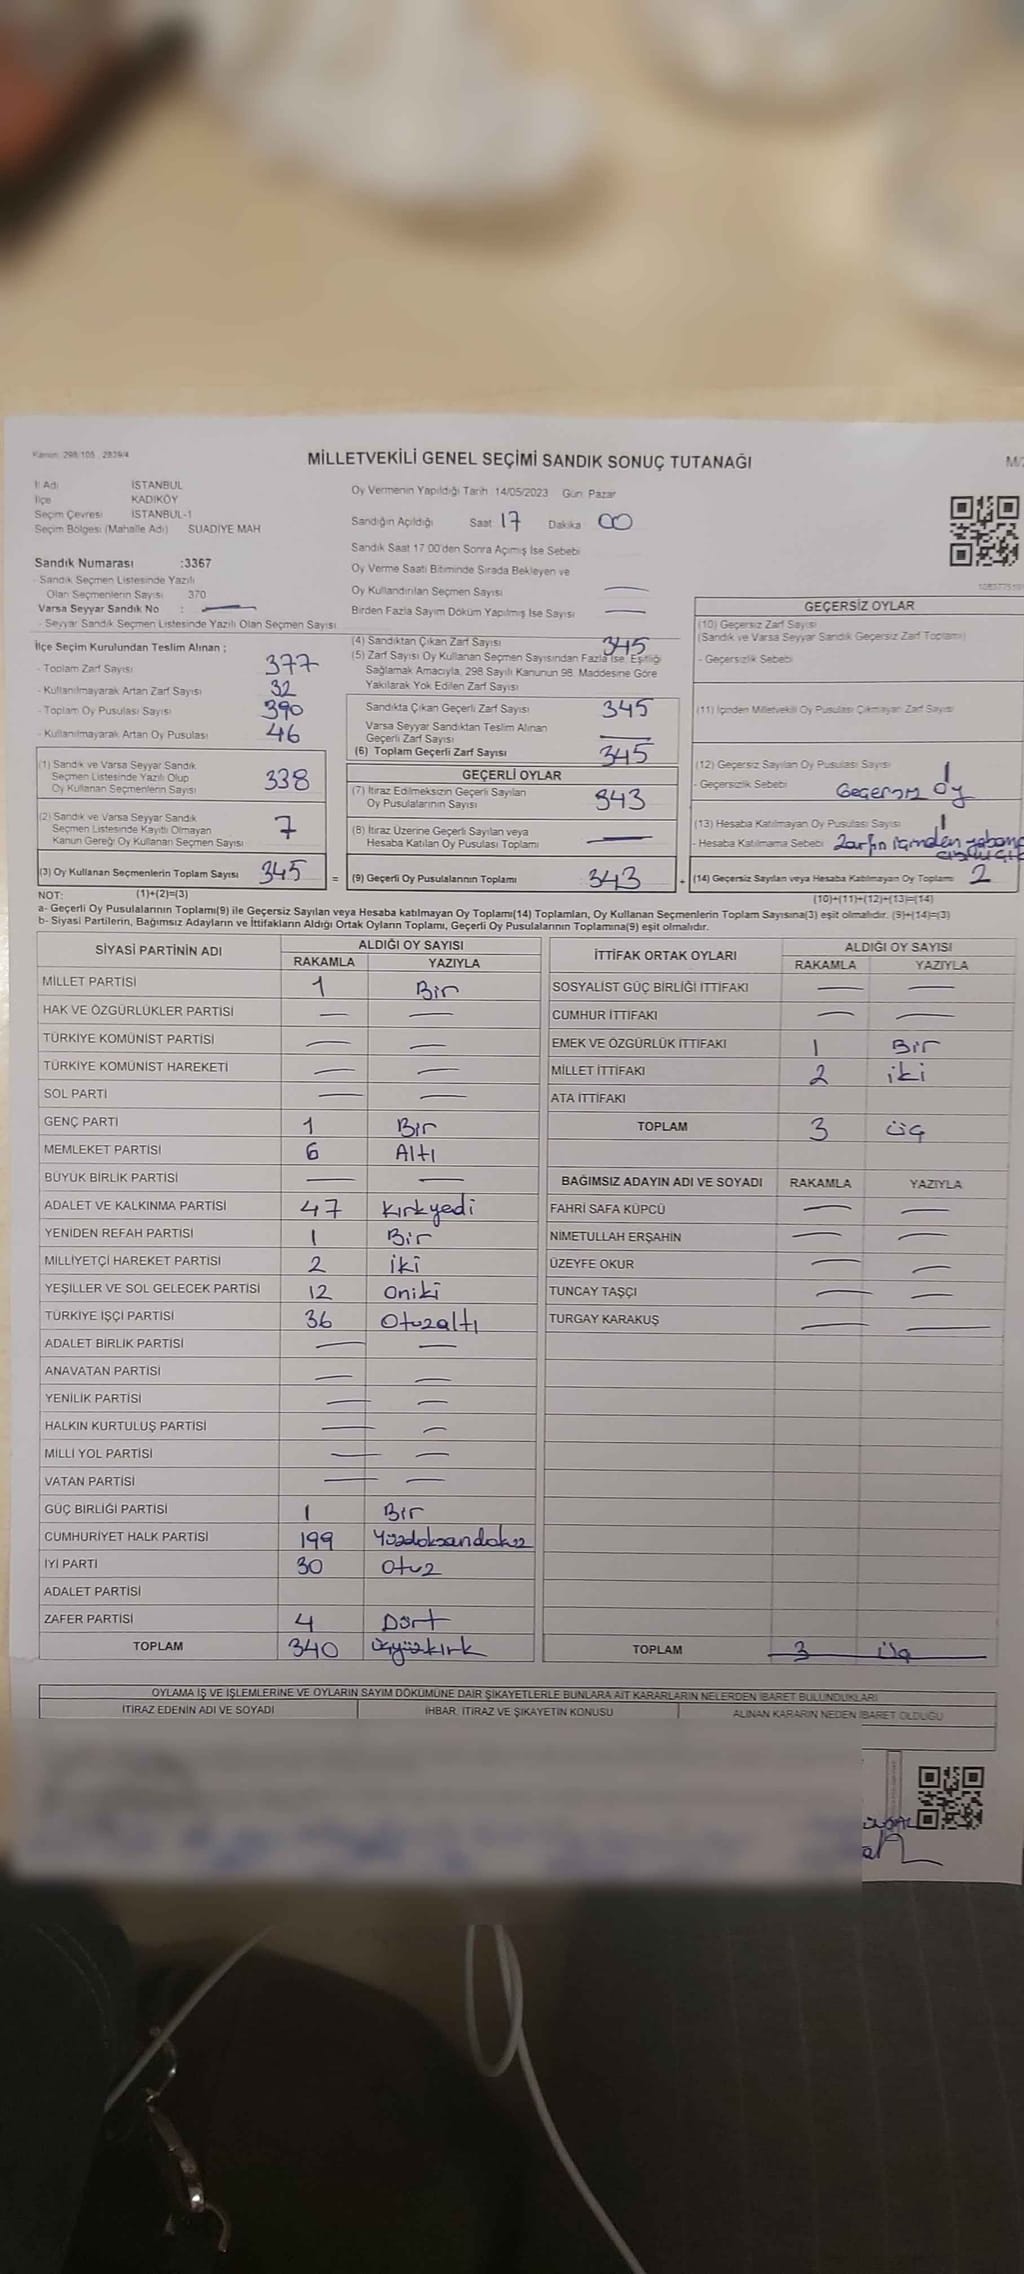 Kanun: 298/105 , 2839/4
MİLLETVEKİLİ GENEL SEÇİMİ SANDIK SONUÇ TUTANAĞI
İl Adı İSTANBUL
İlçe KADIKÖY
Seçim Çevresi İSTANBUL-1
Seçim Bölgesi (Mahalle Adı) SUADİYE MAH
Sandık Numarası :3367
- Sandık Seçmen Listesinde Yazılı
Olan Seçmenlerin Sayısı 370
Varsa Seyyar Sandık No :
- Seyyar Sandık Seçmen Listesinde Yazılı Olan Seçmen Sayısı
İlçe Seçim Kurulundan Teslim Alınan ;
- Toplam Zarf Sayısı 377
- Kullanılmayarak Artan Zarf Sayısı 32
- Toplam Oy Pusulası Sayısı 390
- Kullanılmayarak Artan Oy Pusulası 46
(1) Sandık ve Varsa Seyyar Sandık
Seçmen Listesinde Yazılı Olup
Oy Kullanan Seçmenlerin Sayısı 338
(2) Sandık ve Varsa Seyyar Sandık
Seçmen Listesinde Kayıtlı Olmayan
Kanun Gereği Oy Kullanan Seçmen Sayısı 7
(3) Oy Kullanan Seçmenlerin Toplam Sayısı 345 =
Oy Vermenin Yapıldığı Tarih :14/05/2023 Gün: Pazar
Sandığın Açıldığı Saat 17 Dakika 00
Sandık Saat 17.00'den Sonra Açımış İse Sebebi
Oy Verme Saati Bitiminde Sırada Bekleyen ve
Oy Kullandırılan Seçmen Sayısı —
Birden Fazla Sayım Döküm Yapılmış İse Sayısı —
(4) Sandıktan Çıkan Zarf Sayısı 345
(5) Zarf Sayısı Oy Kullanan Seçmen Sayısından Fazla İse, Eşitliği
Sağlamak Amacıyla, 298 Sayılı Kanunun 98. Maddesine Göre
Yakılarak Yok Edilen Zarf Sayısı
Sandıkta Çıkan Geçerli Zarf Sayısı 345
Varsa Seyyar Sandıktan Teslim Alınan
Geçerli Zarf Sayısı —
(6) Toplam Geçerli Zarf Sayısı 345
GEÇERLİ OYLAR
(7) İtiraz Edilmeksizin Geçerli Sayılan
Oy Pusulalarının Sayısı 343
(8) İtiraz Üzerine Geçerli Sayılan veya
Hesaba Katılan Oy Pusulası Toplamı —
(9) Geçerli Oy Pusulalarının Toplamı 343 +
GEÇERSİZ OYLAR
(10) Geçersiz Zarf Sayısı
(Sandık ve Varsa Seyyar Sandık Geçersiz Zarf Toplamı)
- Geçersizlik Sebebi
(11) İçinden Milletvekili Oy Pusulası Çıkmayan Zarf Sayısı
(12) Geçersiz Sayılan Oy Pusulası Sayısı 1
- Geçersizlik Sebebi Geçersiz Oy
(13) Hesaba Katılmayan Oy Pusulası Sayısı 1
- Hesaba Katılmama Sebebi Zarfın içinden
(14) Geçersiz Sayılan veya Hesaba Katılmayan Oy Toplamı 2
NOT: (1)+(2)=(3) (10)+(11)+(12)+(13)=(14)
a- Geçerli Oy Pusulalarının Toplamı(9) ile Geçersiz Sayılan veya Hesaba katılmayan Oy Toplamı(14) Toplamları, Oy Kullanan Seçmenlerin Toplam Sayısına(3) eşit olmalıdır. (9)+(14)=(3)
b- Siyasi Partilerin, Bağımsız Adayların ve İttifakların Aldığı Ortak Oyların Toplamı, Geçerli Oy Pusulalarının Toplamına(9) eşit olmalıdır.
SİYASİ PARTİNİN ADI ALDIĞI OY SAYISI
RAKAMLA YAZIYLA
MİLLET PARTİSİ 1 Bir
HAK VE ÖZGÜRLÜKLER PARTİSİ — —
TÜRKİYE KOMÜNİST PARTİSİ — —
TÜRKİYE KOMÜNİST HAREKETİ — —
SOL PARTİ — —
GENÇ PARTİ 1 Bir
MEMLEKET PARTİSİ 6 Altı
BÜYÜK BİRLİK PARTİSİ — —
ADALET VE KALKINMA PARTİSİ 47 Kırkyedi
YENİDEN REFAH PARTİSİ 1 Bir
MİLLİYETÇİ HAREKET PARTİSİ 2 iki
YEŞİLLER VE SOL GELECEK PARTİSİ 12 oniki
TÜRKİYE İŞÇİ PARTİSİ 36 Otuzaltı
ADALET BİRLİK PARTİSİ — —
ANAVATAN PARTİSİ — —
YENİLİK PARTİSİ — —
HALKIN KURTULUŞ PARTİSİ — —
MİLLİ YOL PARTİSİ — —
VATAN PARTİSİ — —
GÜÇ BİRLİĞİ PARTİSİ 1 Bir
CUMHURİYET HALK PARTİSİ 199 Yüzdoksandokuz
İYİ PARTİ 30 Otuz
ADALET PARTİSİ
ZAFER PARTİSİ 4 Dört
TOPLAM 340 üçyüzkırk
İTTİFAK ORTAK OYLARI ALDIĞI OY SAYISI
RAKAMLA YAZIYLA
SOSYALİST GÜÇ BİRLİĞİ İTTİFAKI — —
CUMHUR İTTİFAKI — —
EMEK VE ÖZGÜRLÜK İTTİFAKI 1 Bir
MİLLET İTTİFAKI 2 iki
ATA İTTİFAKI
TOPLAM 3 üç
BAĞIMSIZ ADAYIN ADI VE SOYADI RAKAMLA YAZIYLA
FAHRİ SAFA KÜPCÜ — —
NİMETULLAH ERŞAHİN — —
ÜZEYFE OKUR — —
TUNCAY TAŞÇI — —
TURGAY KARAKUŞ — —
TOPLAM 3 üç
OYLAMA İŞ VE İŞLEMLERİNE VE OYLARIN SAYIM DÖKÜMÜNE DAİR ŞİKAYETLERLE BUNLARA AİT KARARLARIN NELERDEN İBARET BULUNDUKLARI
İTİRAZ EDENİN ADI VE SOYADI İHBAR, İTİRAZ VE ŞİKAYETİN KONUSU ALINAN KARARIN NEDEN İBARET OLDUĞU